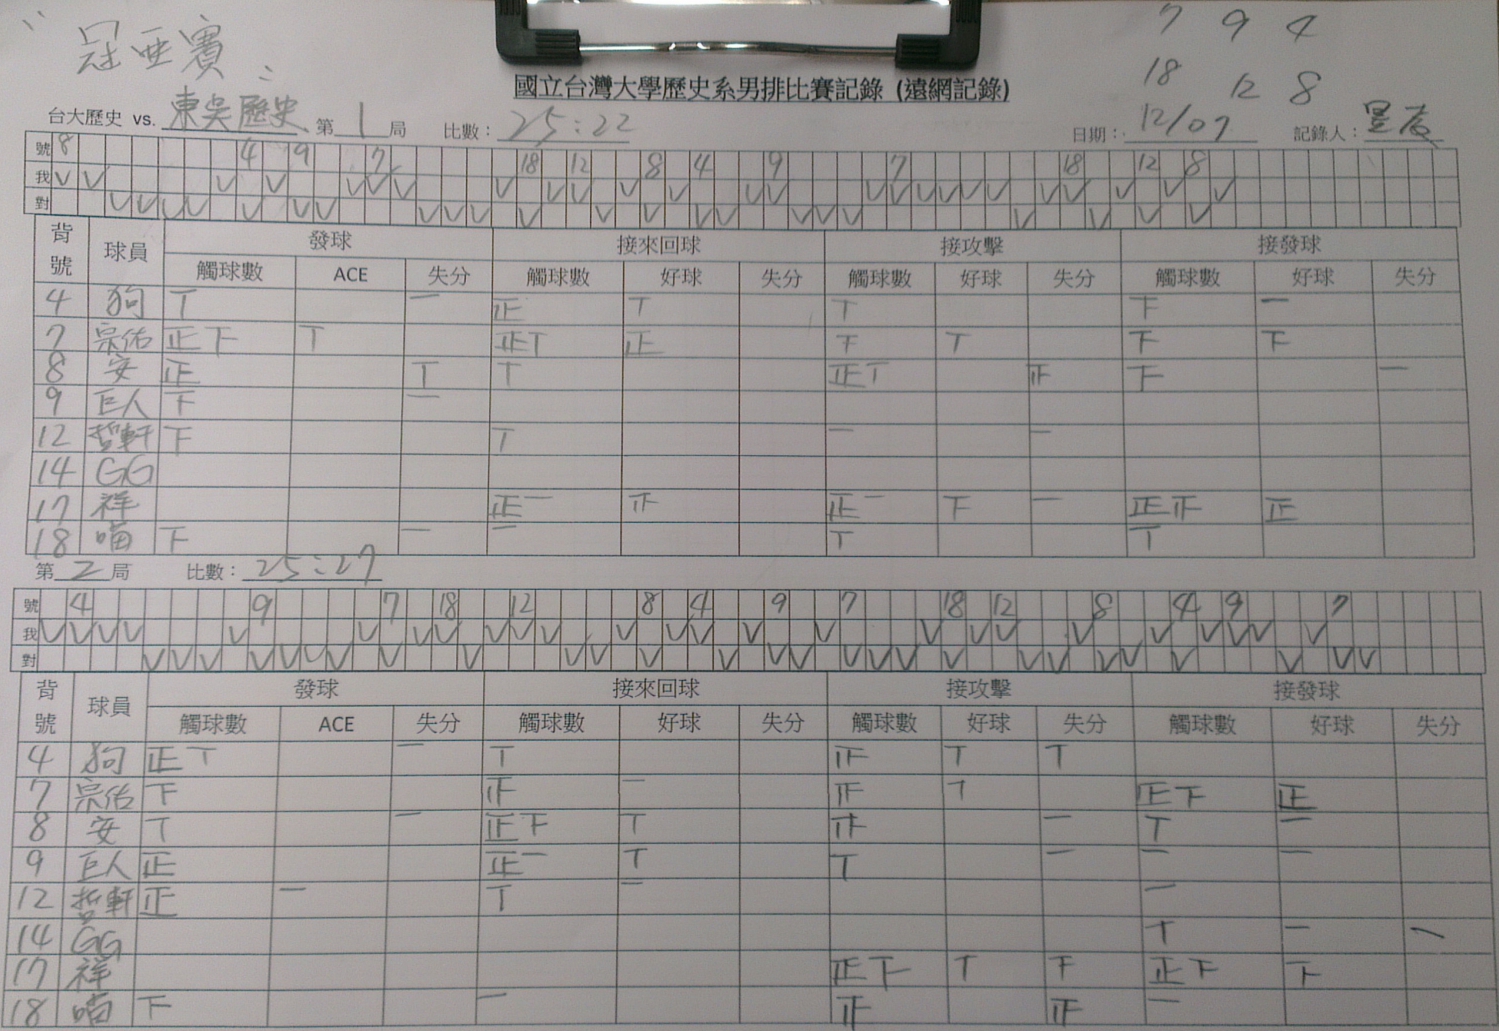 冠亜賽
7 9 4
18 12 8
國立台灣大學歷史系男排比賽記錄 (遠網記錄)
台大歷史 vs. 東吳歷史 第 1 局 比數： 25：22 日期： 12/07 記錄人：
號 8 4 9 7 18 12 8 4 9 7 18 12 8
我
對
背號 球員 發球 接來回球 接攻擊 接發球
觸球數 ACE 失分 觸球數 好球 失分 觸球數 好球 失分 觸球數 好球 失分
4 狗 丅 一 正 丅 丅 下 一
7 宗佑 正下 丅 正丅 正 下 丅 下 下
8 安 正 丅 丅 正丅 正 下 一
9 巨人 下 一
12 哲軒 下 丅 一 一
14 GG
17 祥 正一 正 正一 下 一 正正 正
18 喵 下 一 一 丅 丅
第 2 局 比數： 25：27
號 4 9 7 18 12 8 4 9 7 18 12 8 4 9 7
我
對
背號 球員 發球 接來回球 接攻擊 接發球
觸球數 ACE 失分 觸球數 好球 失分 觸球數 好球 失分 觸球數 好球 失分
4 狗 正丅 一 丅 正 丅 丅
7 宗佑 下 正 一 正 丅 正下 正
8 安 丅 一 正下 丅 正 一 丅 一
9 巨人 正 正一 丅 丅 一 一 一
12 哲軒 正 一 丅 一 一
14 GG 丅 一 一
17 祥 正下 丅 下 正下 下
18 喵 下 一 正 正 一